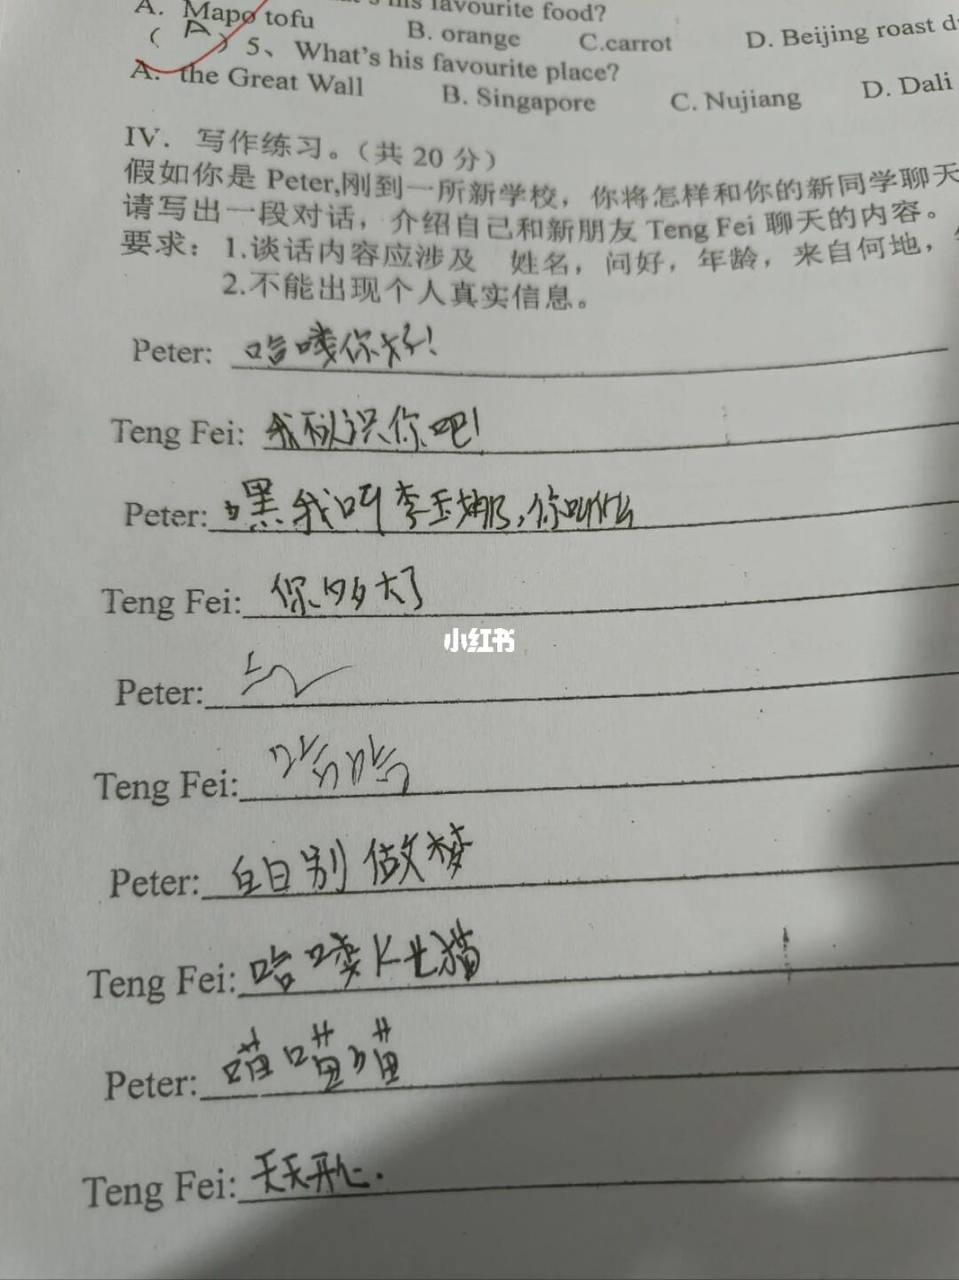 's his favourite food?
A. Mapo tofu B. orange C.carrot D. Beijing roast d
( A ) 5、What's his favourite place?
A. the Great Wall B. Singapore C. Nujiang D. Dali
IV. 写作练习。（共 20 分）
假如你是 Peter,刚到一所新学校，你将怎样和你的新同学聊天
请写出一段对话，介绍自己和新朋友 Teng Fei 聊天的内容。
要求：1.谈话内容应涉及 姓名，问好，年龄，来自何地，
2.不能出现个人真实信息。
Peter: 哈喽你好!
Teng Fei: 我不认识你吧!
Peter: 嘿我叫李玉娜,你叫什么
Teng Fei: 你够大了
小红书
Peter:
Teng Fei:
Peter: 白日别做梦
Teng Fei: 哈喽 K 七猫
Peter: 喵喵喵
Teng Fei: 天天开心.